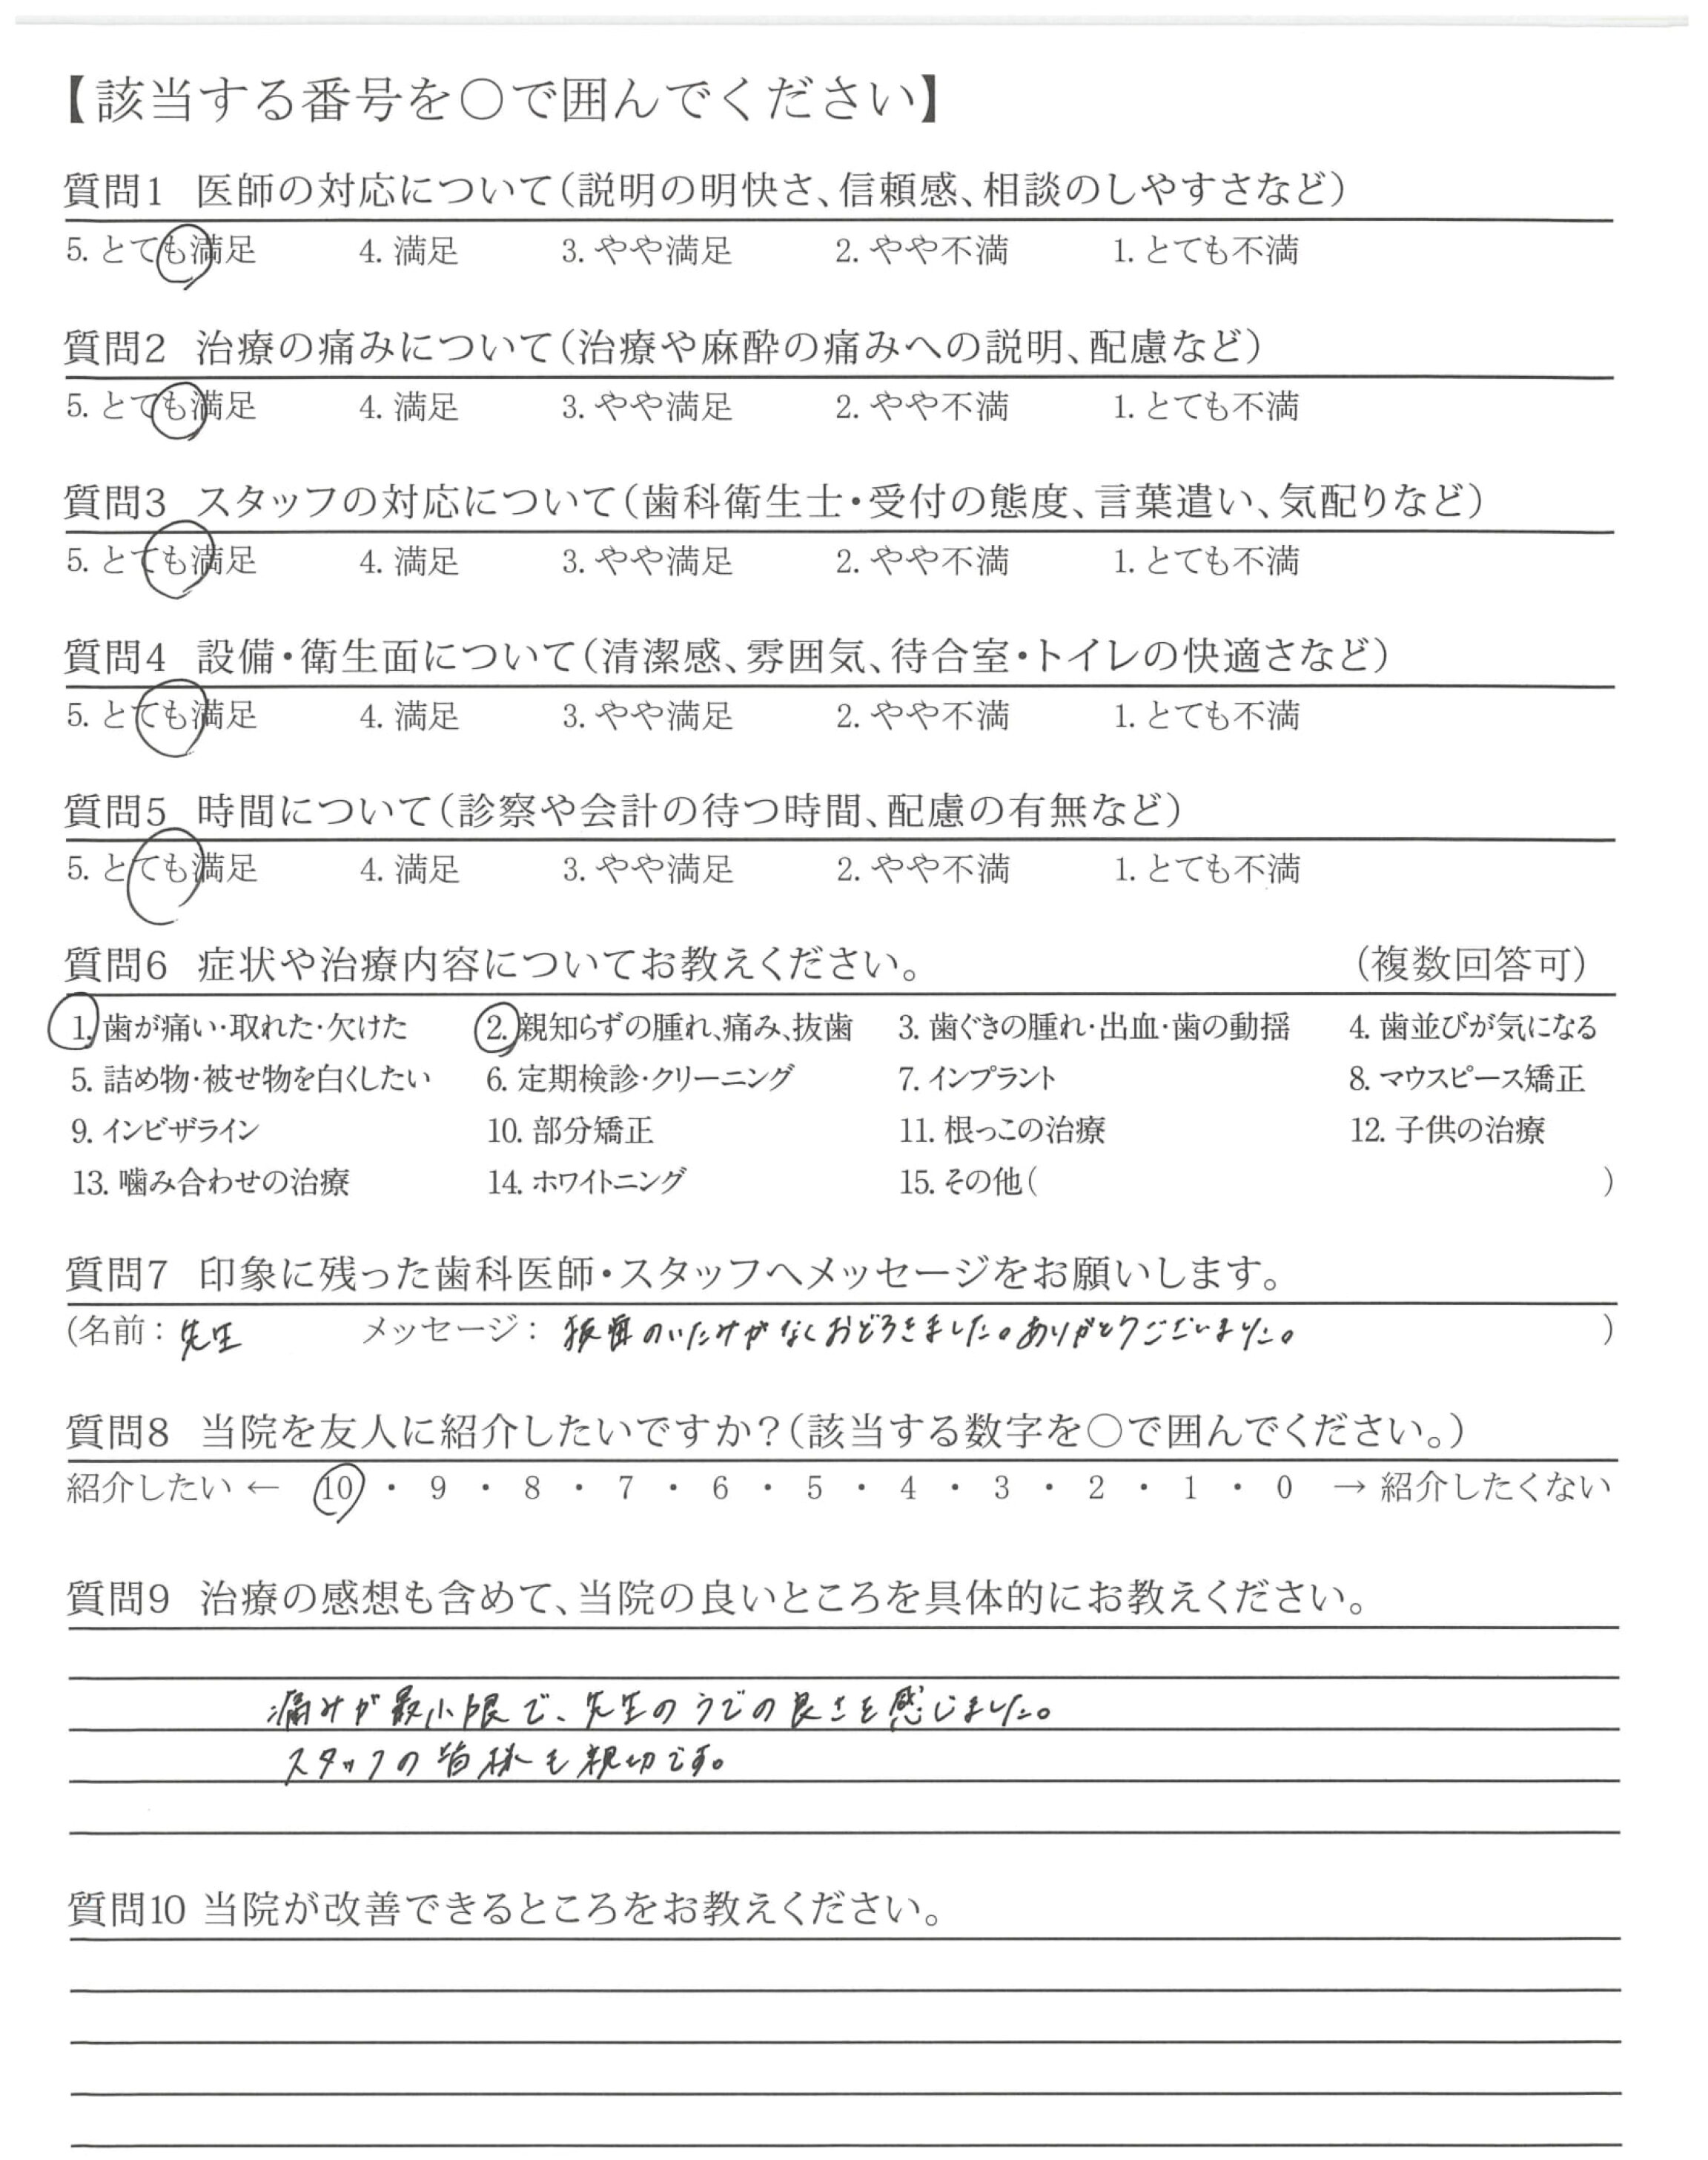 【該当する番号を○で囲んでください】
質問1 医師の対応について(説明の明快さ、信頼感、相談のしやすさなど)
5. とても満足 4. 満足 3. やや満足 2. やや不満 1. とても不満
質問2 治療の痛みについて(治療や麻酔の痛みへの説明、配慮など)
5. とても満足 4. 満足 3. やや満足 2. やや不満 1. とても不満
質問3 スタッフの対応について(歯科衛生士・受付の態度、言葉遣い、気配りなど)
5. とても満足 4. 満足 3. やや満足 2. やや不満 1. とても不満
質問4 設備・衛生面について(清潔感、雰囲気、待合室・トイレの快適さなど)
5. とても満足 4. 満足 3. やや満足 2. やや不満 1. とても不満
質問5 時間について(診察や会計の待つ時間、配慮の有無など)
5. とても満足 4. 満足 3. やや満足 2. やや不満 1. とても不満
質問6 症状や治療内容についてお教えください。 (複数回答可)
1. 歯が痛い・取れた・欠けた 2. 親知らずの腫れ、痛み、抜歯 3. 歯ぐきの腫れ・出血・歯の動揺 4. 歯並びが気になる
5. 詰め物・被せ物を白くしたい 6. 定期検診・クリーニング 7. インプラント 8. マウスピース矯正
9. インビザライン 10. 部分矯正 11. 根っこの治療 12. 子供の治療
13. 噛み合わせの治療 14. ホワイトニング 15. その他( )
質問7 印象に残った歯科医師・スタッフへメッセージをお願いします。
(名前: 先生 メッセージ: 抜歯のいたみがなくおどろきました。ありがとうございました。 )
質問8 当院を友人に紹介したいですか?(該当する数字を○で囲んでください。)
紹介したい ← 10 ・ 9 ・ 8 ・ 7 ・ 6 ・ 5 ・ 4 ・ 3 ・ 2 ・ 1 ・ 0 → 紹介したくない
質問9 治療の感想も含めて、当院の良いところを具体的にお教えください。
痛みが最小限で、先生のうでの良さを感じました。
スタッフの皆様も親切です。
質問10 当院が改善できるところをお教えください。